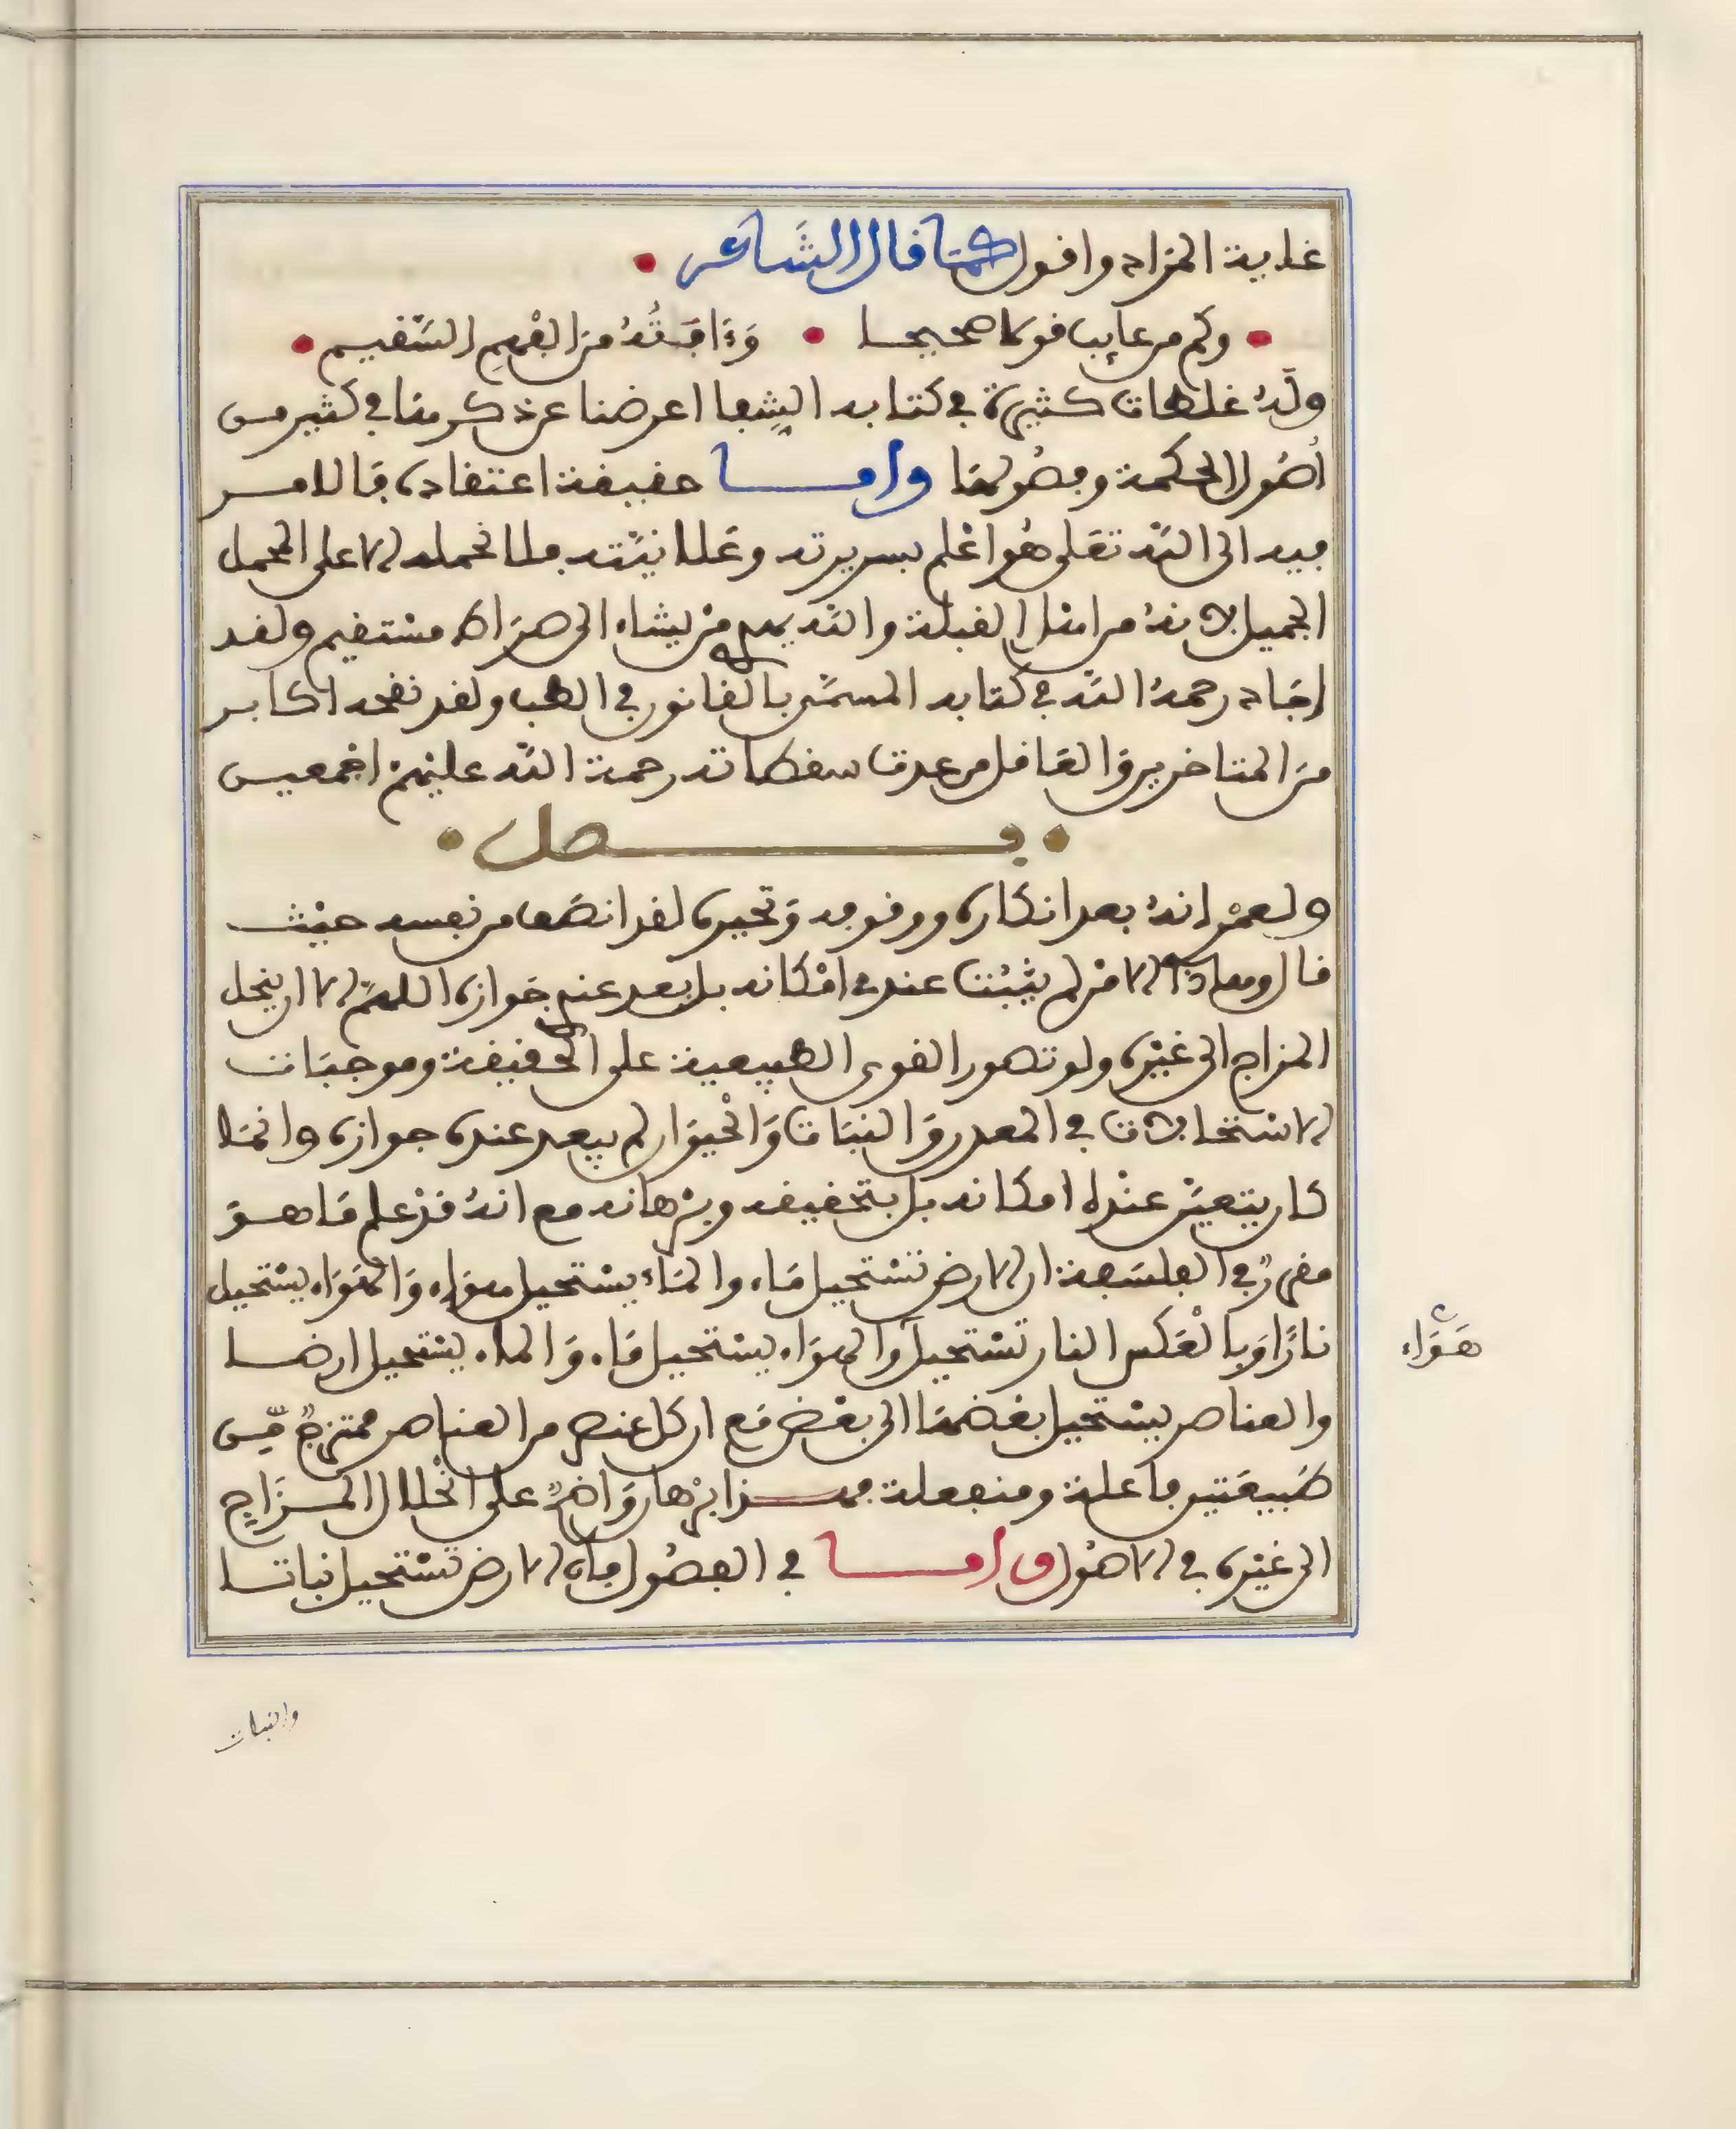 غاية المراد واقول كما قال الشاعر
وكم من عايب قولا صحيحا • وءَافَتُهُ مِنَ الفهمِ السَّقيم
ولهُ غلطات كثيرة في كتابه الشِفا اعرضنا عن ذكرها في كثير من
اُصُول الحكمة وفصُولها واما حقيقة اعتقاده فالامر
فيه الى الله تعلى هُو اعْلم بسريرته وعَلانيَّته فلا نحمله الا على المحمل
الجميل لانهُ من اهل القبلة والله يهدي مَنْ يشاء الى صِرَاط مسْتقيم ولقد
اجَاد رحمهُ الله في كتابه المسمَّى بالقانون في الطب ولقد نقحه اكابر
مِنَ المتاخرين وَالعَاقل من عدت سقطاته رحمة الله عليْهمْ اجْمعين
فصل
ولعمْري انهُ بعد انكاره ووقوفه وَتحيره لقد انصَف من نفسه حيْث
قال وهاذا الامْر لم يثبُتْ عندي امْكانه بل بعد عندي جَوازه اللهمَّ الا ان ينحل
المزاج الى غيْره ولو تصور القوى الطبيعية على الحقيقة وموجبَات
الاسْتحالات في المعدن وَالنبَات وَالحْيوَان لم يبعد عنده جوازه وانما
كان يتعيَّن عنْده امكانه بل بتحقيقه وبرْهانه مع انهُ قدْ علم مَا هو
مقررٌ في الفلسَفة ان الارض تسْتحيل مَاء والمَاءُ يسْتحيل هوَاء وَالهَوَاء يسْتحيل
نارًا وَبالْعَكس النار تسْتحيل وَالهوَاء يسْتحيل مَاء وَالماء يسْتحيل ارضا
هَوَاء
والعناصر يسْتحيل بعْضهَا الى بعْض مَع ان كل عنصر من العناصر ممتزجٌ مِّن
طبيعَتين فاعلة ومنفعلة فهذا برْهان وَاضحٌ على انحْلال المزَاج
الى غيْره في الاصُول واما في الفصُول فان الارض تسْتحيل نباتا
والنبات